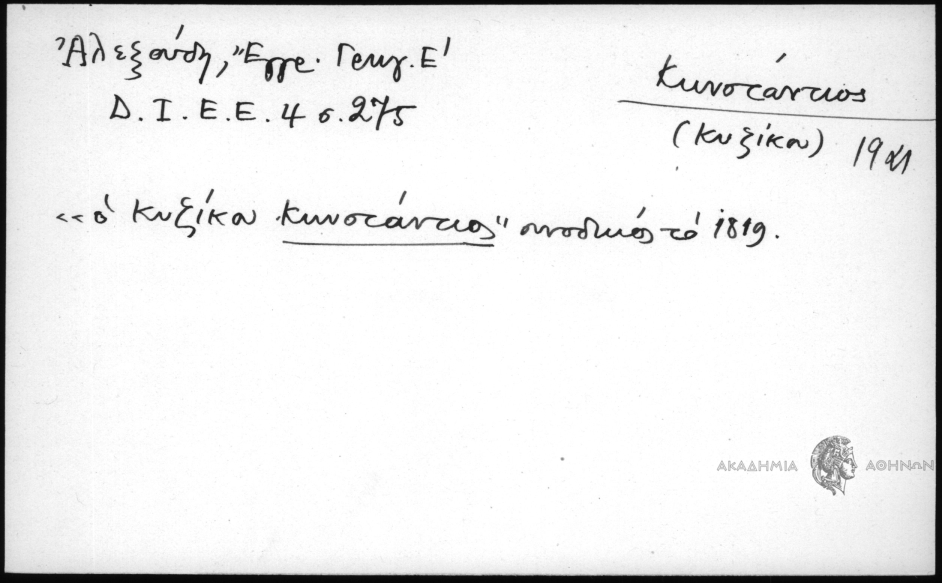 Ἀλεξούδη, Ἔγγρ. Γρηγ. Ε'
Δ. Ι. Ε. Ε. 4 σ. 275
Κωνστάντιος
(Κυζίκου)
«ὁ Κυζίκου Κωνστάντιος" συνοδικός τό 1819.
ΑΚΑΔΗΜΙΑ ΑΘΗΝΩΝ